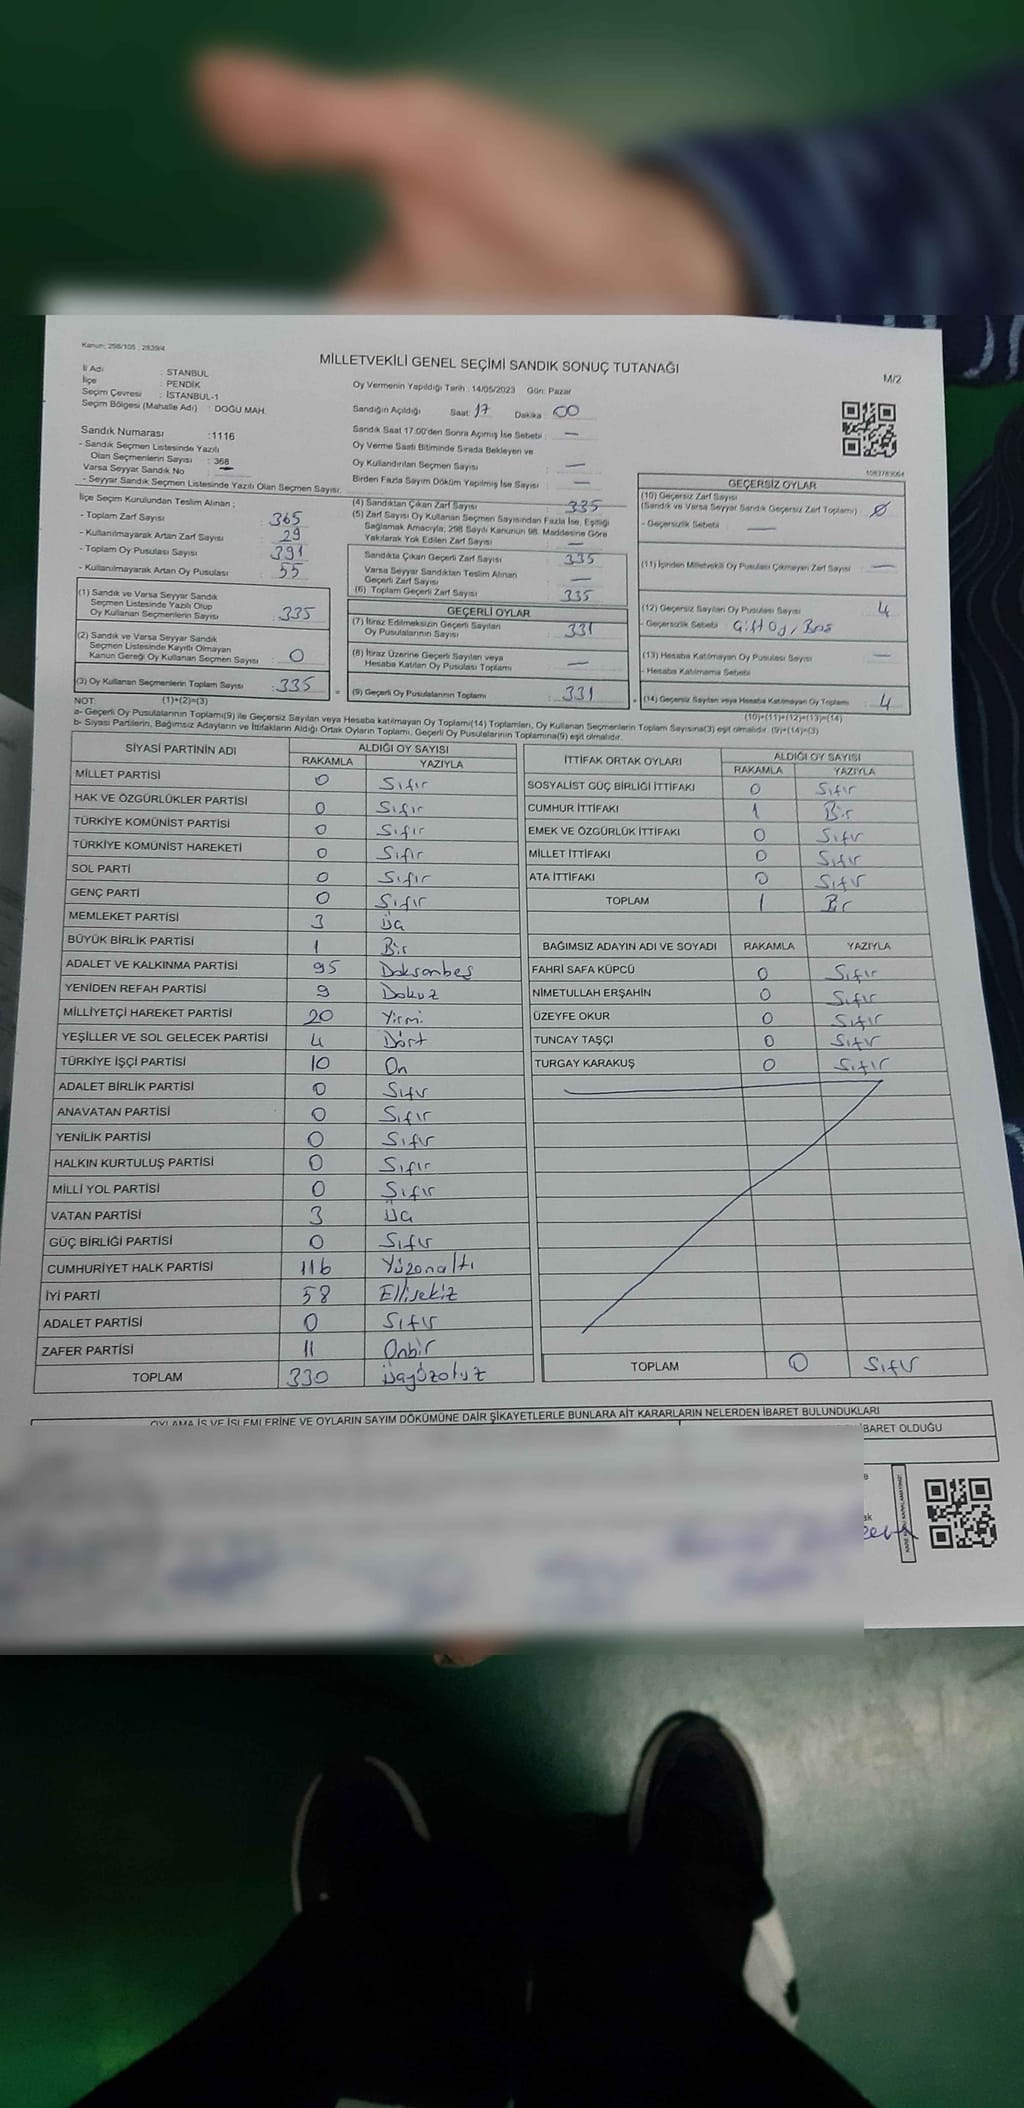 Kanun: 298/105 ; 2839/4
MİLLETVEKİLİ GENEL SEÇİMİ SANDIK SONUÇ TUTANAĞI
M/2
İl Adı : STANBUL
İlçe : PENDİK
Seçim Çevresi : İSTANBUL-1
Seçim Bölgesi (Mahalle Adı) : DOĞU MAH.
Oy Vermenin Yapıldığı Tarih : 14/05/2023 Gün: Pazar
Sandığın Açıldığı Saat: 17 Dakika: 00
Sandık Saat 17:00'den Sonra Açımış İse Sebebi : —
Oy Verme Saati Bitiminde Sırada Bekleyen ve
Oy Kullandırılan Seçmen Sayısı : —
Birden Fazla Sayım Döküm Yapılmış İse Sayısı : —
Sandık Numarası :1116
- Sandık Seçmen Listesinde Yazılı
Olan Seçmenlerin Sayısı : 368
Varsa Seyyar Sandık No : —
- Seyyar Sandık Seçmen Listesinde Yazılı Olan Seçmen Sayısı:
İlçe Seçim Kurulundan Teslim Alınan ;
- Toplam Zarf Sayısı : 365
- Kullanılmayarak Artan Zarf Sayısı : 29
- Toplam Oy Pusulası Sayısı : 391
- Kullanılmayarak Artan Oy Pusulası : 55
(1) Sandık ve Varsa Seyyar Sandık
Seçmen Listesinde Yazılı Olup
Oy Kullanan Seçmenlerin Sayısı : 335
(2) Sandık ve Varsa Seyyar Sandık
Seçmen Listesinde Kayıtlı Olmayan
Kanun Gereği Oy Kullanan Seçmen Sayısı : 0
(3) Oy Kullanan Seçmenlerin Toplam Sayısı : 335
(4) Sandıktan Çıkan Zarf Sayısı : 335
(5) Zarf Sayısı Oy Kullanan Seçmen Sayısından Fazla İse, Eşitliği
Sağlamak Amacıyla; 298 Sayılı Kanunun 98. Maddesine Göre
Yakılarak Yok Edilen Zarf Sayısı : —
Sandıkta Çıkan Geçerli Zarf Sayısı : 335
Varsa Seyyar Sandıktan Teslim Alınan
Geçerli Zarf Sayısı : —
(6) Toplam Geçerli Zarf Sayısı : 335
GEÇERLİ OYLAR
(7) İtiraz Edilmeksizin Geçerli Sayılan
Oy Pusulalarının Sayısı : 331
(8) İtiraz Üzerine Geçerli Sayılan veya
Hesaba Katılan Oy Pusulası Toplamı : —
= (9) Geçerli Oy Pusulalarının Toplamı : 331
1083783064
GEÇERSİZ OYLAR
(10) Geçersiz Zarf Sayısı
(Sandık ve Varsa Seyyar Sandık Geçersiz Zarf Toplamı) : Ø
- Geçersizlik Sebebi : —
(11) İçinden Milletvekili Oy Pusulası Çıkmayan Zarf Sayısı : —
(12) Geçersiz Sayılan Oy Pusulası Sayısı : 4
- Geçersizlik Sebebi : Çift Oy, Boş
(13) Hesaba Katılmayan Oy Pusulası Sayısı : —
- Hesaba Katılmama Sebebi
+ (14) Geçersiz Sayılan veya Hesaba Katılmayan Oy Toplamı : 4
NOT: (1)+(2)=(3) (10)+(11)+(12)+(13)=(14)
a- Geçerli Oy Pusulalarının Toplamı(9) ile Geçersiz Sayılan veya Hesaba katılmayan Oy Toplamı(14) Toplamları, Oy Kullanan Seçmenlerin Toplam Sayısına(3) eşit olmalıdır. (9)+(14)=(3)
b- Siyasi Partilerin, Bağımsız Adayların ve İttifakların Aldığı Ortak Oyların Toplamı, Geçerli Oy Pusulalarının Toplamına(9) eşit olmalıdır.
SİYASİ PARTİNİN ADI ALDIĞI OY SAYISI
RAKAMLA YAZIYLA
MİLLET PARTİSİ 0 Sıfır
HAK VE ÖZGÜRLÜKLER PARTİSİ 0 Sıfır
TÜRKİYE KOMÜNİST PARTİSİ 0 Sıfır
TÜRKİYE KOMÜNİST HAREKETİ 0 Sıfır
SOL PARTİ 0 Sıfır
GENÇ PARTİ 0 Sıfır
MEMLEKET PARTİSİ 3 Üç
BÜYÜK BİRLİK PARTİSİ 1 Bir
ADALET VE KALKINMA PARTİSİ 95 Doksanbeş
YENİDEN REFAH PARTİSİ 9 Dokuz
MİLLİYETÇİ HAREKET PARTİSİ 20 Yirmi
YEŞİLLER VE SOL GELECEK PARTİSİ 4 Dört
TÜRKİYE İŞÇİ PARTİSİ 10 On
ADALET BİRLİK PARTİSİ 0 Sıfır
ANAVATAN PARTİSİ 0 Sıfır
YENİLİK PARTİSİ 0 Sıfır
HALKIN KURTULUŞ PARTİSİ 0 Sıfır
MİLLİ YOL PARTİSİ 0 Sıfır
VATAN PARTİSİ 3 Üç
GÜÇ BİRLİĞİ PARTİSİ 0 Sıfır
CUMHURİYET HALK PARTİSİ 116 Yüzonaltı
İYİ PARTİ 58 Ellisekiz
ADALET PARTİSİ 0 Sıfır
ZAFER PARTİSİ 11 Onbir
TOPLAM 330 Üçyüzotuz
İTTİFAK ORTAK OYLARI ALDIĞI OY SAYISI
RAKAMLA YAZIYLA
SOSYALİST GÜÇ BİRLİĞİ İTTİFAKI 0 Sıfır
CUMHUR İTTİFAKI 1 Bir
EMEK VE ÖZGÜRLÜK İTTİFAKI 0 Sıfır
MİLLET İTTİFAKI 0 Sıfır
ATA İTTİFAKI 0 Sıfır
TOPLAM 1 Bir
BAĞIMSIZ ADAYIN ADI VE SOYADI RAKAMLA YAZIYLA
FAHRİ SAFA KÜPCÜ 0 Sıfır
NİMETULLAH ERŞAHİN 0 Sıfır
ÜZEYFE OKUR 0 Sıfır
TUNCAY TAŞÇI 0 Sıfır
TURGAY KARAKUŞ 0 Sıfır
TOPLAM 0 Sıfır
OYLAMA İŞ VE İŞLEMLERİNE VE OYLARIN SAYIM DÖKÜMÜNE DAİR ŞİKAYETLERLE BUNLARA AİT KARARLARIN NELERDEN İBARET BULUNDUKLARI
İBARET OLDUĞU